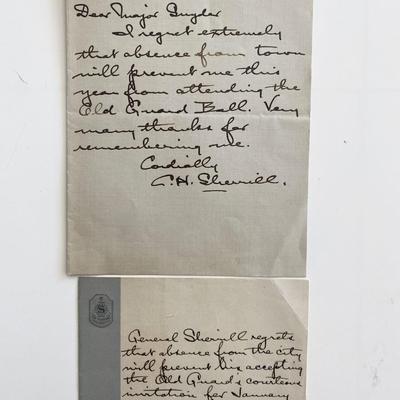 Dear Major Snyder
I regret extremely
that absence from town
will prevent me this
year from attending the
Old Guard Ball. Very
many thanks for
remembering me.
Cordially
C.H. Sherrill.
S
General Sherrill regrets
that absence from the city
will prevent his accepting
the Old Guard's courteous
invitation for January